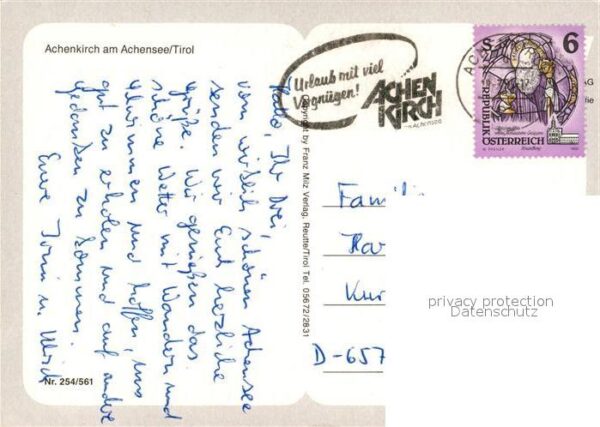 Achenkirch am Achensee/Tirol
Hallo, Ihr Drei,
vom wirklich schönen Achensee
senden wir Euch herzliche
Grüße. Wir genießen das
schöne Wetter mit Wandern und
Schwimmen und hoffen, uns
gut zu erholen und auf andere
Gedanken zu kommen.
Eure Irmi u. Ulrich
Nr. 254/561
Copyright by Franz Milz Verlag, Reutte/Tirol Tel. 05672/2831
Urlaub mit viel
Vergnügen!
ACHEN
KIRCH
am Achensee
S 6
REPUBLIK
ÖSTERREICH
AG
lie
Famili
Ha
Kur
D-657
privacy protection
Datenschutz